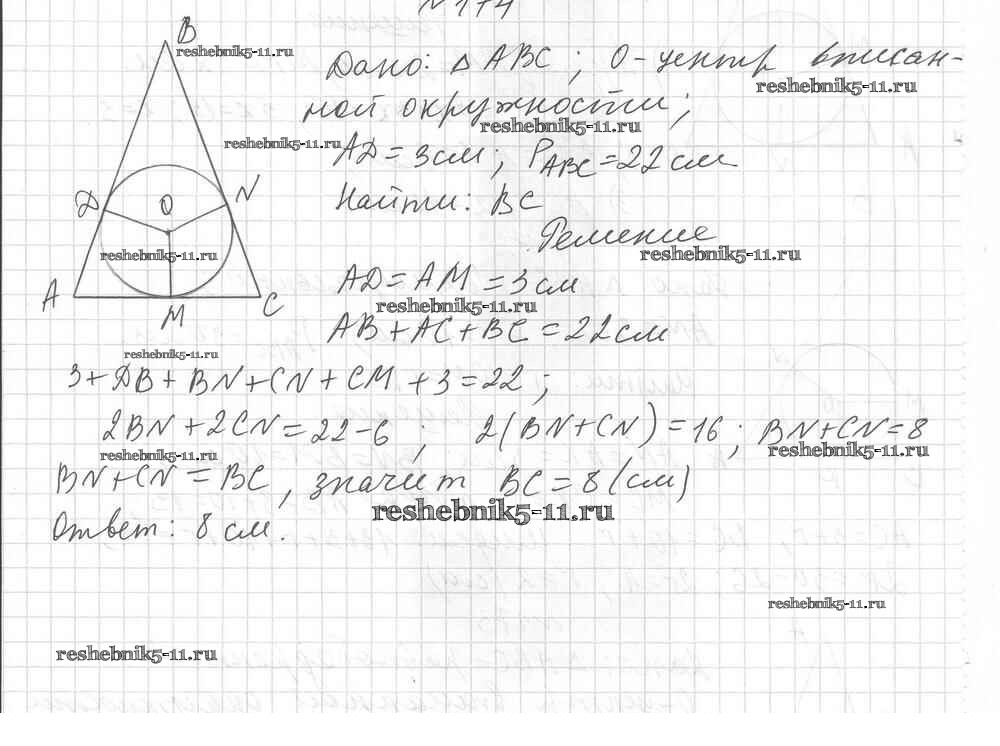 №174
B
reshebnik5-11.ru
Дано: △ABC; O-центр вписан-
reshebnik5-11.ru
ной окружности;
reshebnik5-11.ru
reshebnik5-11.ru
AD=3см; P_ABC=22см
Д O N
Найти: BC
Решение
reshebnik5-11.ru
reshebnik5-11.ru
A M C
AD=AM=3см
reshebnik5-11.ru
AB+AC+BC=22см
reshebnik5-11.ru
3+ДB+BN+CN+CM+3=22;
2BN+2CN=22-6; 2(BN+CN)=16; BN+CN=8
reshebnik5-11.ru
reshebnik5-11.ru
BN+CN=BC, значит BC=8(см)
reshebnik5-11.ru
Ответ: 8 см.
reshebnik5-11.ru
reshebnik5-11.ru